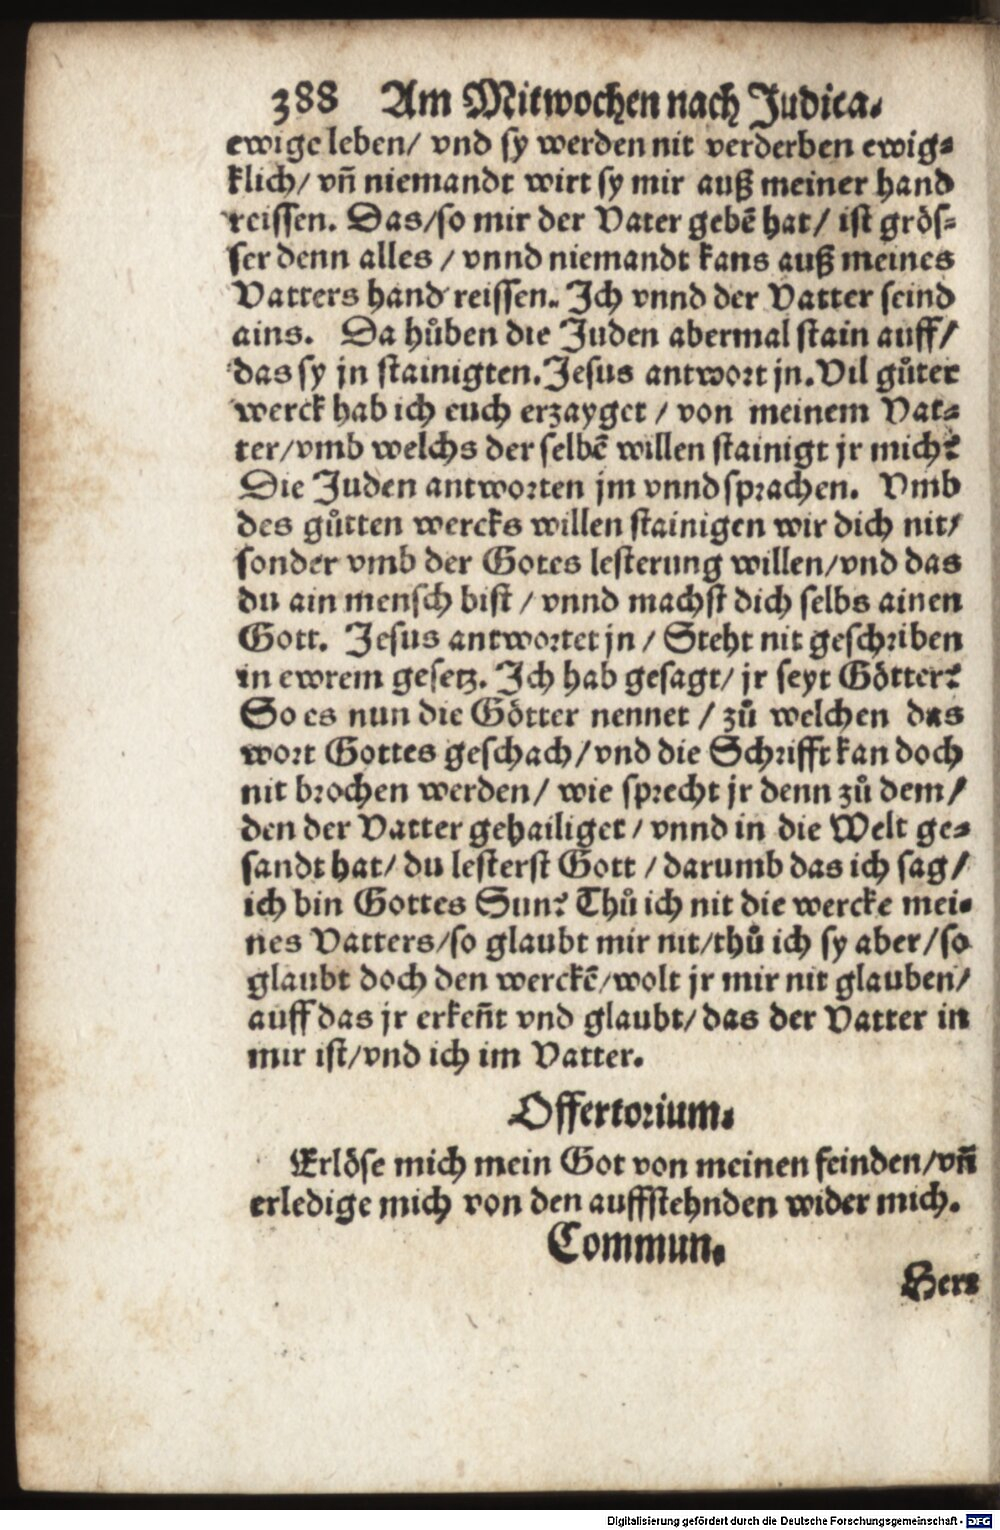 388 Am Mitwochen nach Judica.
ewige leben/ vnd sy werden nit verderben ewig⸗
klich/ vñ niemandt wirt sy mir auß meiner hand
reissen. Das/so mir der Vater gebẽ hat/ ist grös⸗
ser denn alles / vnnd niemandt kans auß meines
Vatters hand reissen. Ich vnnd der Vatter seind
ains. Da hůben die Juden abermal stain auff/
das sy jn stainigten. Jesus antwort jn. Vil gůter
werck hab ich euch erzayget / von meinem Vat⸗
ter/vmb welchs der selbẽ willen stainigt jr mich?
Die Juden antworten jm vnnd sprachen. Vmb
des gůtten wercks willen stainigen wir dich nit/
sonder vmb der Gotes lesterung willen/vnd das
du ain mensch bist / vnnd machst dich selbs ainen
Gott. Jesus antwortet jn / Steht nit geschriben
in ewrem gesetz. Ich hab gesagt/ jr seyt Götter?
So es nun die Götter nennet / zů welchen das
wort Gottes geschach/vnd die Schrifft kan doch
nit brochen werden/ wie sprecht jr denn zů dem/
den der Vatter gehailiget / vnnd in die Welt ge⸗
sandt hat/ du lesterst Gott / darumb das ich sag/
ich bin Gottes Sun? Thů ich nit die wercke mei⸗
nes Vatters/so glaubt mir nit/thů ich sy aber/so
glaubt doch den werckẽ/wolt jr mir nit glauben/
auff das jr erkeñt vnd glaubt/das der Vatter in
mir ist/vnd ich im Vatter.
Offertorium.
Erlöse mich mein Got von meinen feinden/vñ
erledige mich von den auffstehnden wider mich.
Commun.
Herr
Digitalisierung gefördert durch die Deutsche Forschungsgemeinschaft - DFG